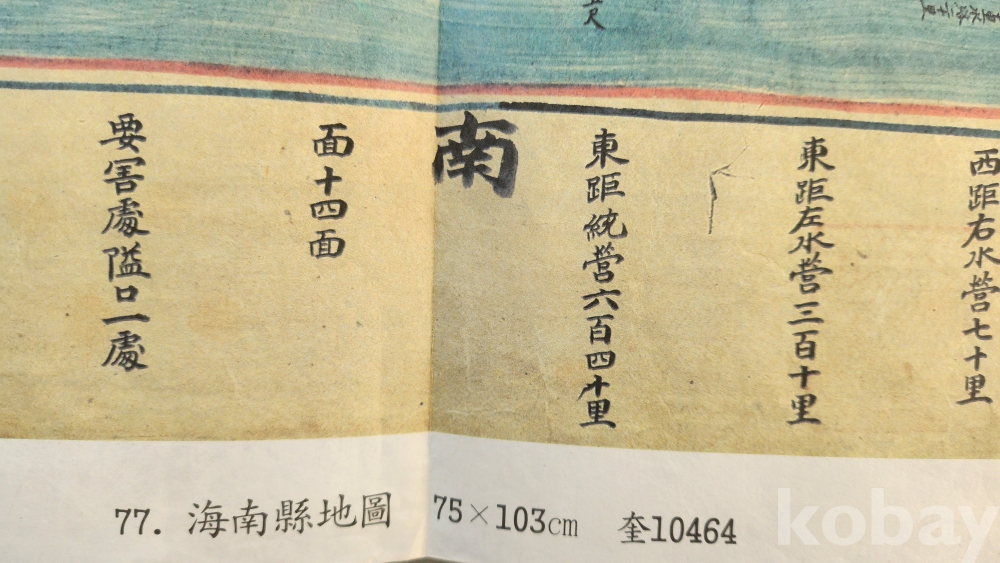 西距右水營七十里
東距左水營三百十里
東距統營六百四十里
南
面十四面
要害處隘口一處
77. 海南縣地圖 75×103cm 奎10464
kobay